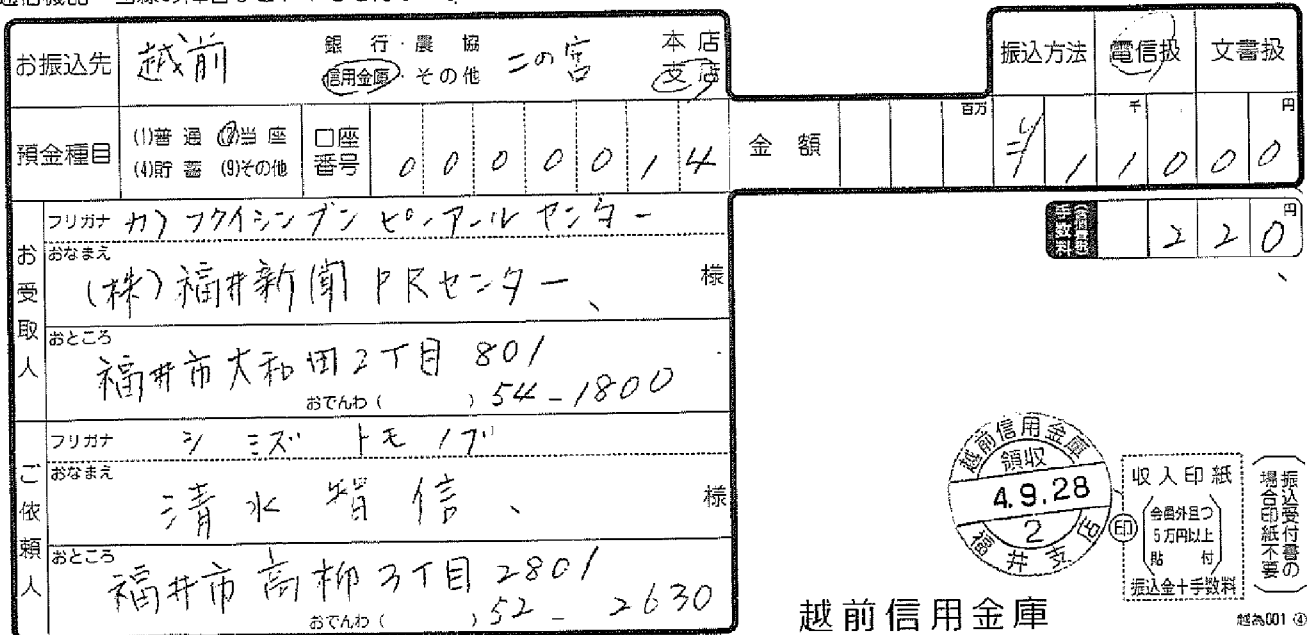 お振込先 越前 銀行・農協 信用金庫・その他 二の宮 本店 支店
振込方法 電信扱 文書扱
預金種目 (1)普通 (2)当座 (4)貯蓄 (9)その他 口座番号 0000014
金額 百万 千 円 ¥11000
手数料 円 220
お受取人
フリガナ カ)フクイシンブンピーアールセンター
おなまえ (株)福井新聞PRセンター 様
おところ 福井市大和田2丁目801
おでんわ( )54-1800
ご依頼人
フリガナ シミズ トモノブ
おなまえ 清水智信 様
おところ 福井市高柳3丁目2801
おでんわ( )52-2630
越前信用金庫
領収
4.9.28
2
福井支店
印
収入印紙
会員外且つ
5万円以上
貼付
振込金+手数料
振込受付書の
場合印紙不要
越前信用金庫
越為001 ④